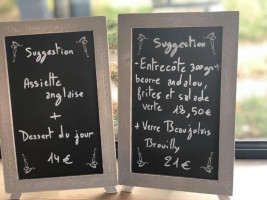 Suggestion
Assiette
anglaise
+
Dessert du jour
14€
Suggestion
- Entrecôte 300gr +
beurre andalou,
frites et salade
verte 18,50€
+ Verre Beaujolais
Brouilly
21€